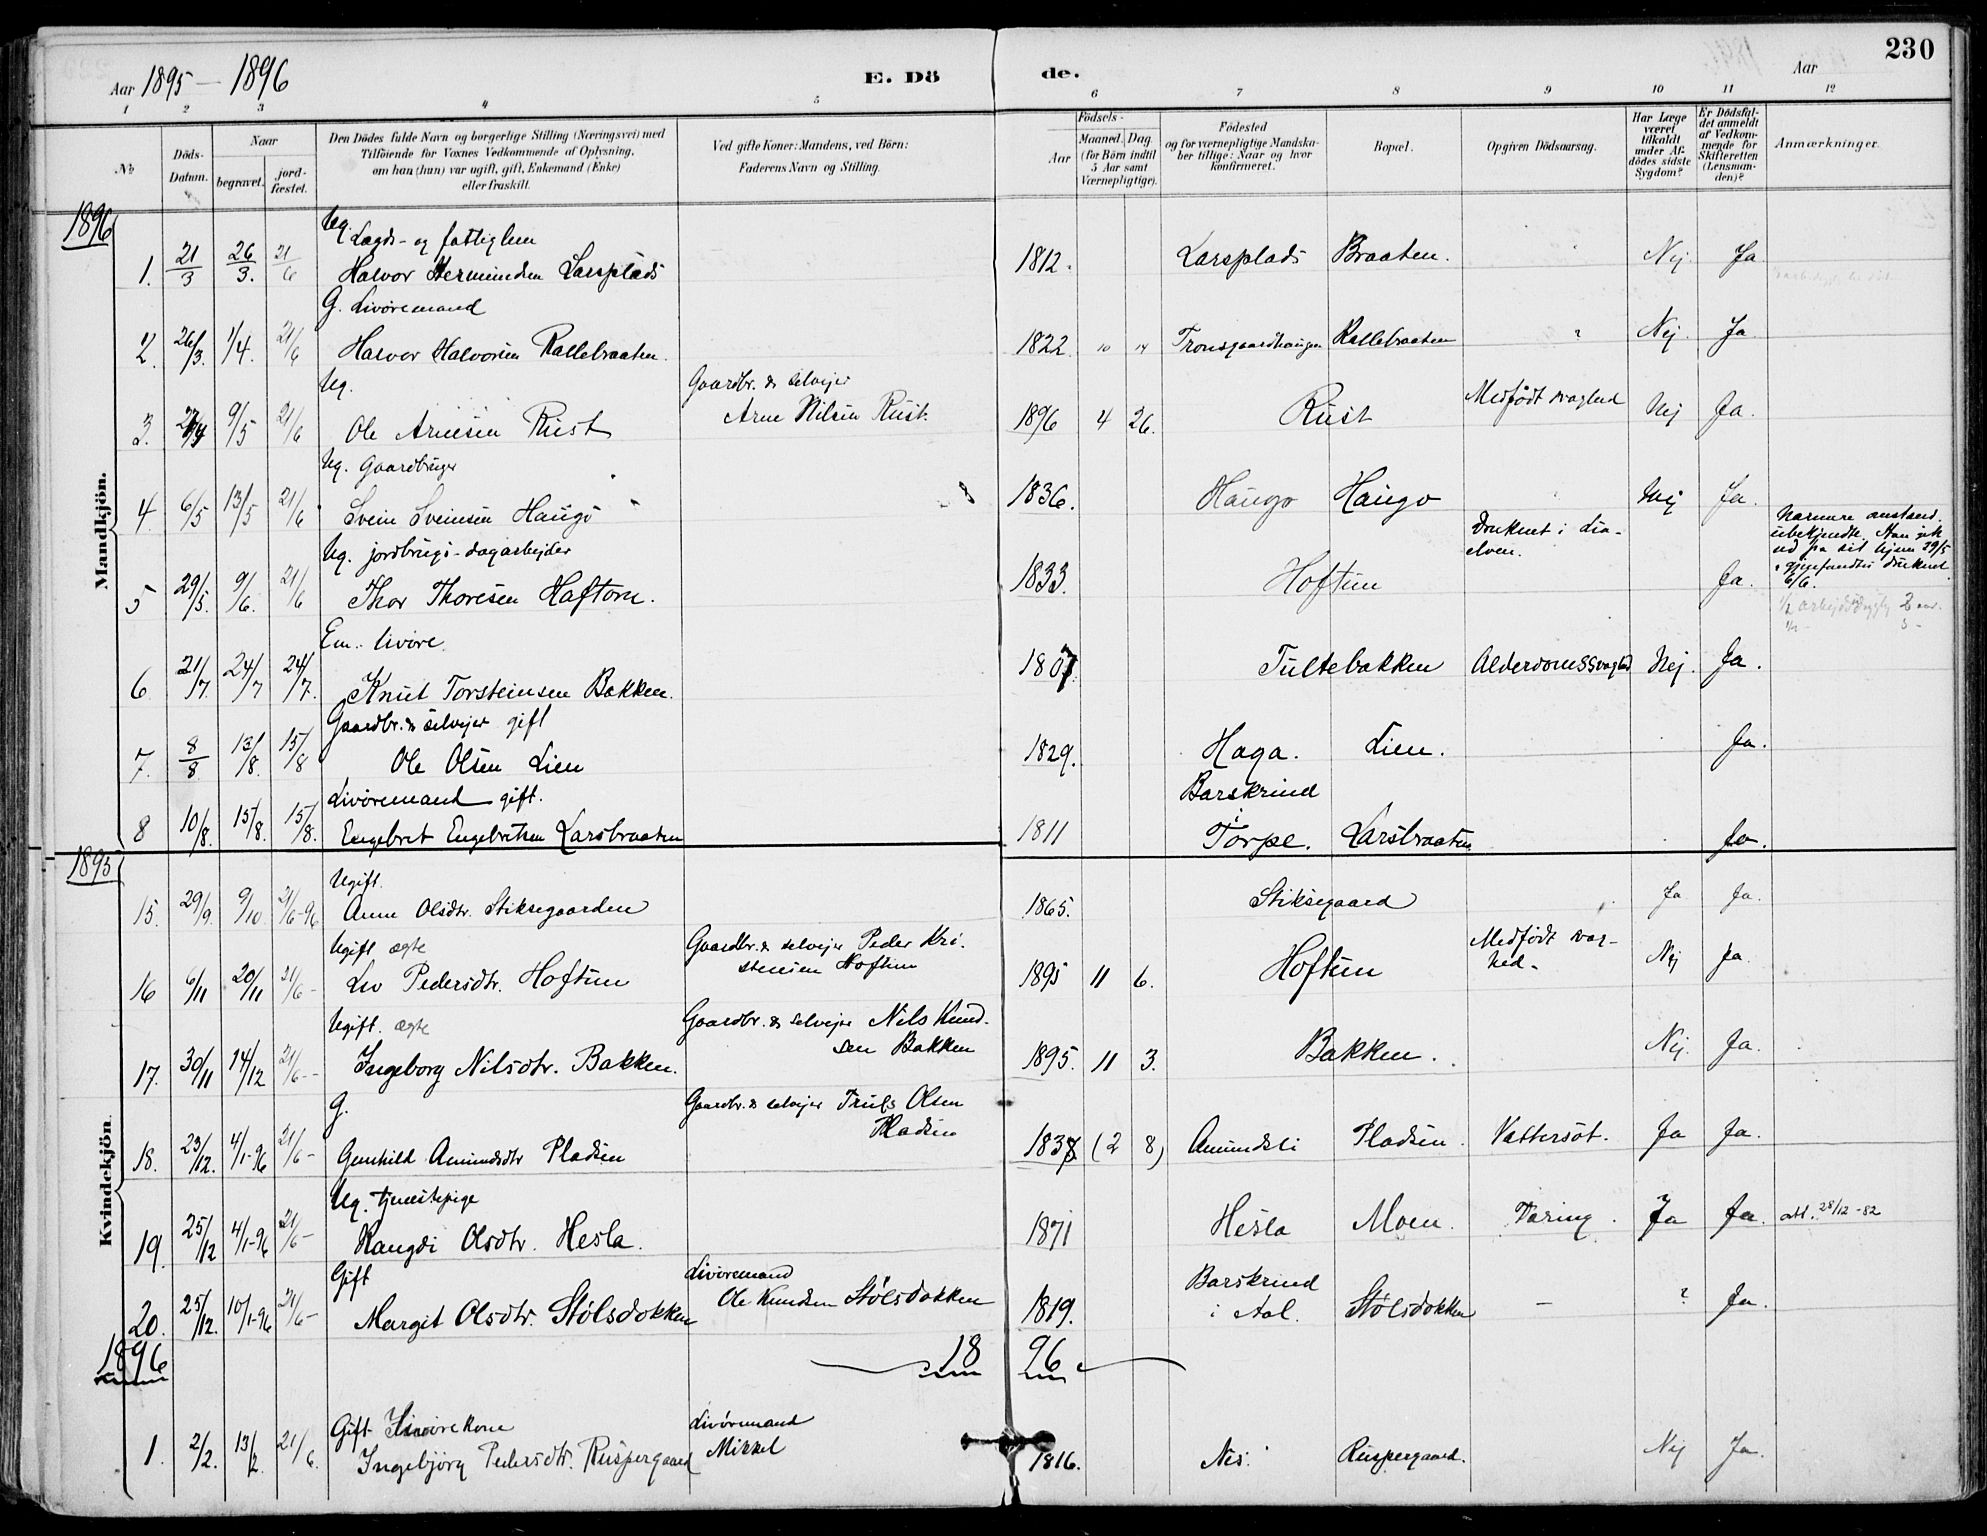 230
Aar 1895 – 1896
E. Dö de.
Aar
1 2 3 4 5 6 7 8 9 10 11 12
No
Döds-Datum.
Naar
begravet.
jord-fæstet.
Den Dödes fulde Navn og borgerlige Stilling (Næringsvei) med
Tilföiende for Voxnes Vedkommende af Oplysning,
om han (hun) var ugift, gift, Enkemand (Enke)
eller fraskilt.
Ved gifte Koner: Mandens, ved Börn:
Faderens Navn og Stilling.
Födsels-
Aar
Maaned. Dag
(for Börn indtil
5 Aar samt
Værnepligtige).
Födested
og for værnepligtige Mandska-
ber tillige: Naar og hvor
konfirmeret.
Bopæl.
Opgiven Dödsaarsag.
Har Læge
været
tilkaldt
under Af-
dödes sidste
Sygdom?
Er Dödsfal-
det anmeldt
af Vedkom-
mende for
Skifteretten
(Lensman-
den)?
Anmærkninger.
1896
Mandkjön.
Ug. Lægds- og fattiglem
1. 21/3 26/3. 21/6 Halvor Hermundsen Larsplads 1812. Larsplads Braaten. Nej. Ja
G. Livøremand
2. 26/3. 1/4. 21/6 Halvor Halvorsen Kallebraaten. 1822 10 14 Tronsgaardhaugen Kallebraaten ? Nej. Ja.
Ug. Gaardbr. & selvejer
3. 27/4 9/5 21/6 Ole Arnesen Rust Arne Nilsen Rust. 1896 4 26. Rust Medfødt svaghed Nej Ja.
Ug. Gaardbruger
4 6/5 13/5 21/6 Svein Sveinsen Haugo 1836. Haugo Haugo Nej Ja.
Ug. jordbrugs-dagarbejder
5 29/5. 9/6. 21/6 Thor Thoresen Haftorn. 1833. Hoftun Druknet i Lia-
elven. Ja.
Nærmere omstænd.
ubekjendte. Han gik
ud fra sit hjem 29/5
gjenfandtes druknet
6/6.
Em. livøre.
6 21/7. 24/7 24/7. Knut Torsteinsen Bakken. 1807. Tultebakken Alderdomssvaghed Nej. Ja.
Gaardbr. & selvejer gift
7. 8/8 13/8. 15/8 Ole Olsen Lien 1829. Haga. Lien. Ja.
Livøremand gift.
8 10/8. 15/8. 15/8. Engebret Engebretsen Larsbraaten 1811 Barskrind
i
Torpe. Larsbraaten Ja.
1895
Kvindekjön.
Ugift.
15. 29/9. 9/10 21/6-96 Anne Olsdtr. Stiksegaarden 1865. Stiksegaard Ja Ja.
Ugift ægte Gaardbr. & selvejer Peder Kri-
stensen Hoftun
16 6/11 20/11 21/6- Liv Pedersdtr. Hoftun 1895 11 6. Hoftun Medfødt svag-
hed- Nej Ja.
Ugift. ægte Gaardbr. & selvejer Nils Knud-
sen Bakken
17. 30/11 14/12 21/6- Ingeborg Nilsdtr. Bakken. 1895. 11 3. Bakken. Nej. Ja.
G. Gaardbr. & selvejer Truls Olsen
Pladsen
18. 23/12. 4/1-96 21/6- Gunhild Amundsdtr Pladsen 1838 (2 8) Amundsli Pladsen. Vattersot. Ja Ja.
Ug. tjenestepige
19. 25/12 4/1-96 21/6- Rangdi Olsdtr. Hesla. 1871 Hesla Moen. Tæring. Ja Ja. att. 28/12-82
Gift Livøremand
20. 25/12. 10/1-96 21/6- Margit Olsdtr. Stølsdokken Ole Knudsen Stølsdokken 1819. Barskrind
i Aal. Stølsdokken – ? Ja.
1896 18 96
Gift Livørekone Livøremand
1. 2/2. 13/2. 21/6. Ingebjørg Pedersdtr. Ruspergaard Mikkel 1816. Nes. Ruspergaard. Nej Ja.